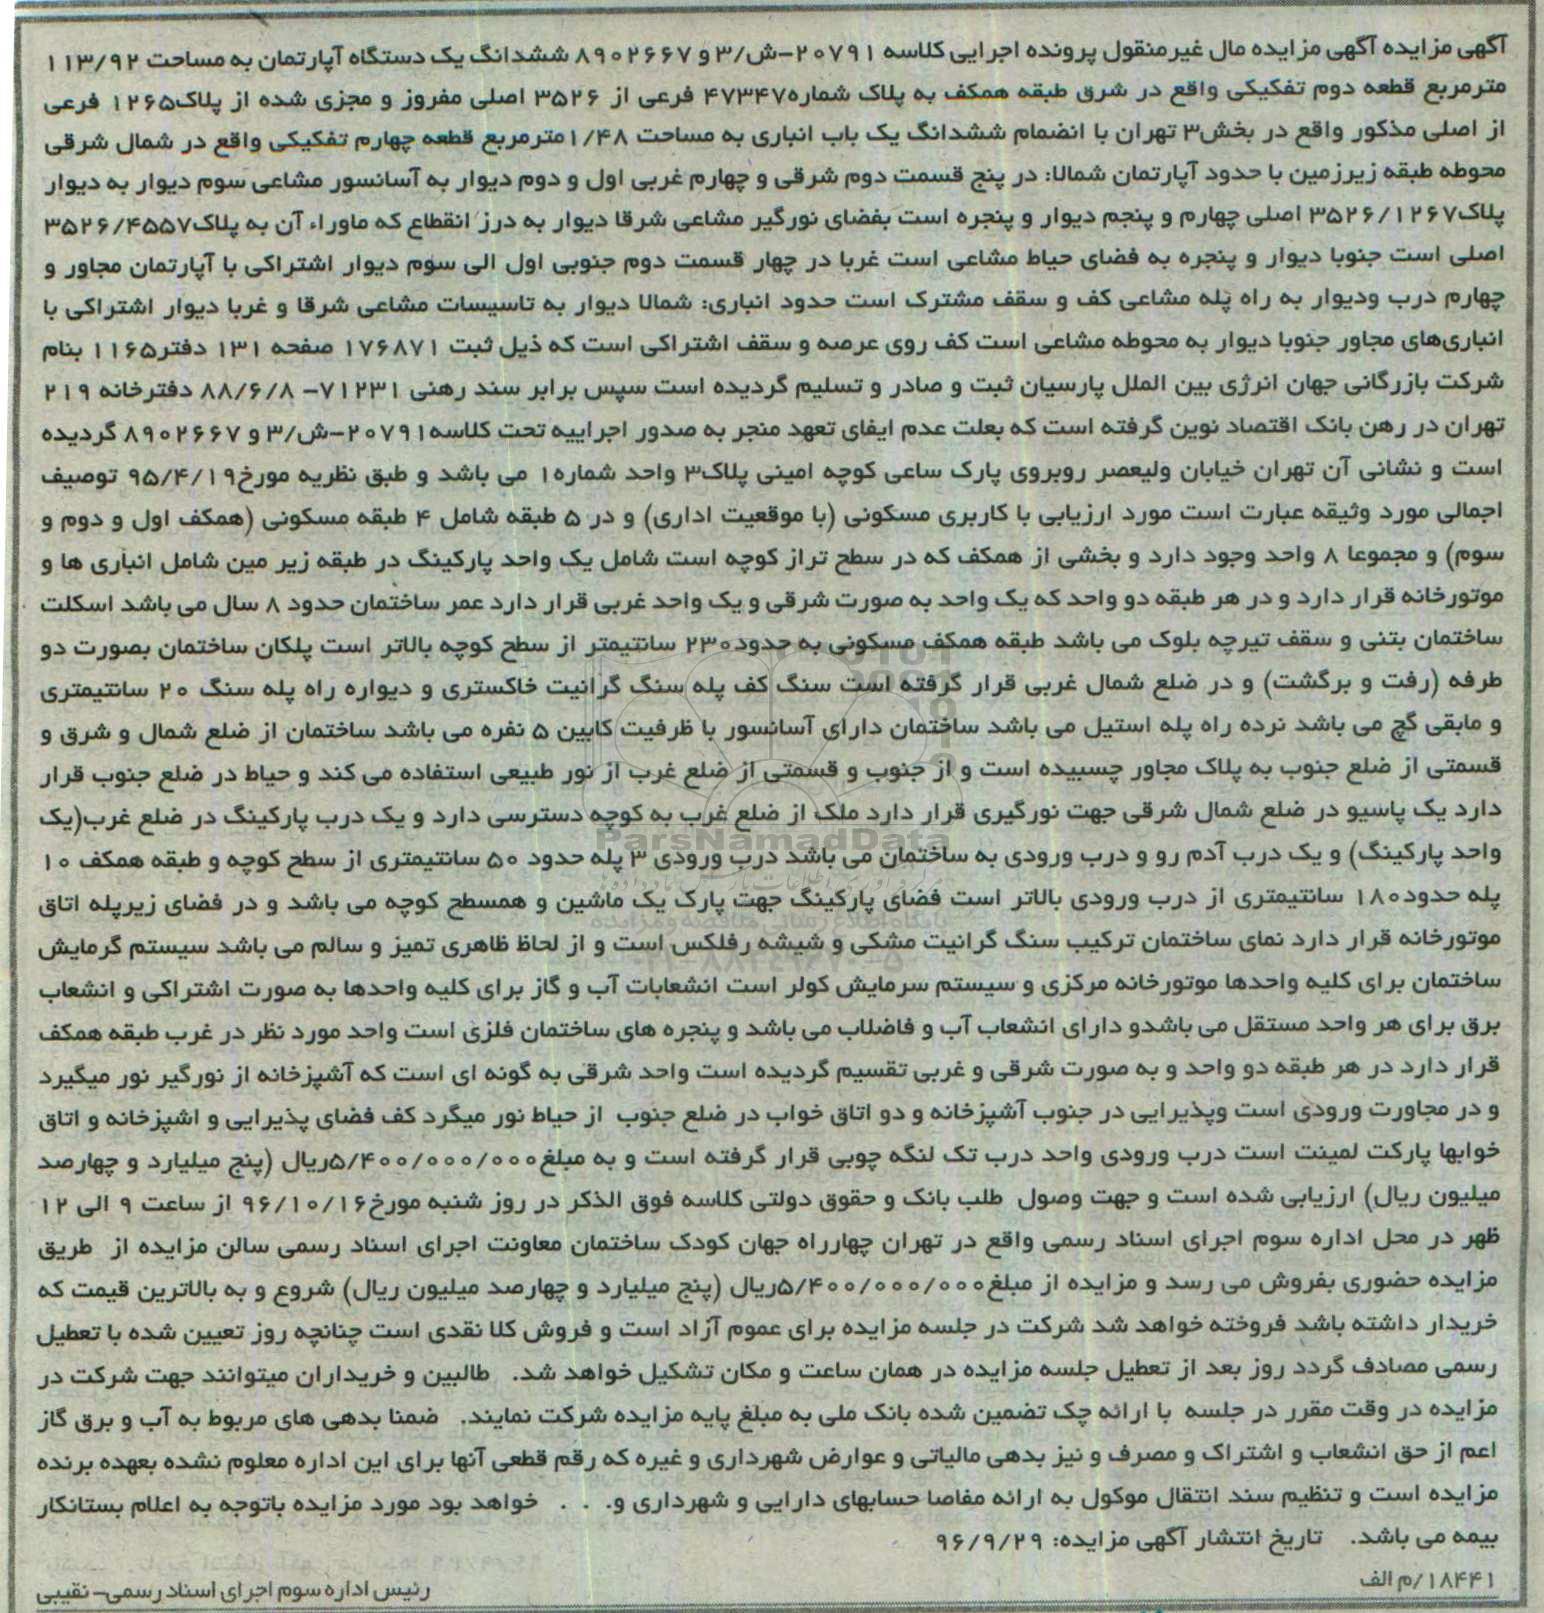 آگهی مزایده آگهی مزایده مال غیرمنقول پرونده اجرایی کلاسه ۲۰۷۹۱-ش/۳ و ۸۹۰۲۶۶۷ ششدانگ یک دستگاه آپارتمان به مساحت ۱۱۳/۹۲
مترمربع قطعه دوم تفکیکی واقع در شرق طبقه همکف به پلاک شماره۴۷۳۴۷ فرعی از ۳۵۲۶ اصلی مفروز و مجزی شده از پلاک۱۲۶۵ فرعی
از اصلی مذکور واقع در بخش۳ تهران با انضمام ششدانگ یک باب انباری به مساحت ۱/۴۸مترمربع قطعه چهارم تفکیکی واقع در شمال شرقی
محوطه طبقه زیرزمین با حدود آپارتمان شمالا: در پنج قسمت دوم شرقی و چهارم غربی اول و دوم دیوار به آسانسور مشاعی سوم دیوار به دیوار
پلاک۳۵۲۶/۱۲۶۷ اصلی چهارم و پنجم دیوار و پنجره است بفضای نورگیر مشاعی شرقا دیوار به درز انقطاع که ماوراء آن به پلاک۳۵۲۶/۴۵۵۷
اصلی است جنوبا دیوار و پنجره به فضای حیاط مشاعی است غربا در چهار قسمت دوم جنوبی اول الی سوم دیوار اشتراکی با آپارتمان مجاور و
چهارم درب ودیوار به راه پله مشاعی کف و سقف مشترک است حدود انباری: شمالا دیوار به تاسیسات مشاعی شرقا و غربا دیوار اشتراکی با
انباری‌های مجاور جنوبا دیوار به محوطه مشاعی است کف روی عرصه و سقف اشتراکی است که ذیل ثبت ۱۷۶۸۷۱ صفحه ۱۳۱ دفتر۱۱۶۵ بنام
شرکت بازرگانی جهان انرژی بین الملل پارسیان ثبت و صادر و تسلیم گردیده است سپس برابر سند رهنی ۷۱۲۳۱- ۸۸/۶/۸ دفترخانه ۲۱۹
تهران در رهن بانک اقتصاد نوین گرفته است که بعلت عدم ایفای تعهد منجر به صدور اجراییه تحت کلاسه۲۰۷۹۱-ش/۳ و ۸۹۰۲۶۶۷ گردیده
است و نشانی آن تهران خیابان ولیعصر روبروی پارک ساعی کوچه امینی پلاک۳ واحد شماره۱ می باشد و طبق نظریه مورخ۹۵/۴/۱۹ توصیف
اجمالی مورد وثیقه عبارت است مورد ارزیابی با کاربری مسکونی (با موقعیت اداری) و در ۵ طبقه شامل ۴ طبقه مسکونی (همکف اول و دوم و
سوم) و مجموعا ۸ واحد وجود دارد و بخشی از همکف که در سطح تراز کوچه است شامل یک واحد پارکینگ در طبقه زیر مین شامل انباری ها و
موتورخانه قرار دارد و در هر طبقه دو واحد که یک واحد به صورت شرقی و یک واحد غربی قرار دارد عمر ساختمان حدود ۸ سال می باشد اسکلت
ساختمان بتنی و سقف تیرچه بلوک می باشد طبقه همکف مسکونی به حدود۲۳۰ سانتیمتر از سطح کوچه بالاتر است پلکان ساختمان بصورت دو
طرفه (رفت و برگشت) و در ضلع شمال غربی قرار گرفته است سنگ کف پله سنگ گرانیت خاکستری و دیواره راه پله سنگ ۲۰ سانتیمتری
و مابقی گچ می باشد نرده راه پله استیل می باشد ساختمان دارای آسانسور با ظرفیت کابین ۵ نفره می باشد ساختمان از ضلع شمال و شرق و
قسمتی از ضلع جنوب به پلاک مجاور چسبیده است و از جنوب و قسمتی از ضلع غرب از نور طبیعی استفاده می کند و حیاط در ضلع جنوب قرار
دارد یک پاسیو در ضلع شمال شرقی جهت نورگیری قرار دارد ملک از ضلع غرب به کوچه دسترسی دارد و یک درب پارکینگ در ضلع غرب(یک
ParsNamadData
واحد پارکینگ) و یک درب آدم رو و درب ورودی به ساختمان می باشد درب ورودی ۳ پله حدود ۵۰ سانتیمتری از سطح کوچه و طبقه همکف ۱۰
پله حدود۱۸۰ سانتیمتری از درب ورودی بالاتر است فضای پارکینگ جهت پارک یک ماشین و همسطح کوچه می باشد و در فضای زیرپله اتاق
موتورخانه قرار دارد نمای ساختمان ترکیب سنگ گرانیت مشکی و شیشه رفلکس است و از لحاظ ظاهری تمیز و سالم می باشد سیستم گرمایش
ساختمان برای کلیه واحدها موتورخانه مرکزی و سیستم سرمایش کولر است انشعابات آب و گاز برای کلیه واحدها به صورت اشتراکی و انشعاب
برق برای هر واحد مستقل می باشدو دارای انشعاب آب و فاضلاب می باشد و پنجره های ساختمان فلزی است واحد مورد نظر در غرب طبقه همکف
قرار دارد در هر طبقه دو واحد و به صورت شرقی و غربی تقسیم گردیده است واحد شرقی به گونه ای است که آشپزخانه از نورگیر نور میگیرد
و در مجاورت ورودی است وپذیرایی در جنوب آشپزخانه و دو اتاق خواب در ضلع جنوب از حیاط نور میگرد کف فضای پذیرایی و اشپزخانه و اتاق
خوابها پارکت لمینت است درب ورودی واحد درب تک لنگه چوبی قرار گرفته است و به مبلغ۵/۴۰۰/۰۰۰/۰۰۰ریال (پنج میلیارد و چهارصد
میلیون ریال) ارزیابی شده است و جهت وصول طلب بانک و حقوق دولتی کلاسه فوق الذکر در روز شنبه مورخ۹۶/۱۰/۱۶ از ساعت ۹ الی ۱۲
ظهر در محل اداره سوم اجرای اسناد رسمی واقع در تهران چهارراه جهان کودک ساختمان معاونت اجرای اسناد رسمی سالن مزایده از طریق
مزایده حضوری بفروش می رسد و مزایده از مبلغ۵/۴۰۰/۰۰۰/۰۰۰ریال (پنج میلیارد و چهارصد میلیون ریال) شروع و به بالاترین قیمت که
خریدار داشته باشد فروخته خواهد شد شرکت در جلسه مزایده برای عموم آزاد است و فروش کلا نقدی است چنانچه روز تعیین شده با تعطیل
رسمی مصادف گردد روز بعد از تعطیل جلسه مزایده در همان ساعت و مکان تشکیل خواهد شد. طالبین و خریداران میتوانند جهت شرکت در
مزایده در وقت مقرر در جلسه با ارائه چک تضمین شده بانک ملی به مبلغ پایه مزایده شرکت نمایند. ضمنا بدهی های مربوط به آب و برق گاز
اعم از حق انشعاب و اشتراک و مصرف و نیز بدهی مالیاتی و عوارض شهرداری و غیره که رقم قطعی آنها برای این اداره معلوم نشده بعهده برنده
مزایده است و تنظیم سند انتقال موکول به ارائه مفاصا حسابهای دارایی و شهرداری و. . . خواهد بود مورد مزایده باتوجه به اعلام بستانکار
بیمه می باشد. تاریخ انتشار آگهی مزایده: ۹۶/۹/۲۹
۱۸۴۴۱/م الف
رئیس اداره سوم اجرای اسناد رسمی- نقیبی